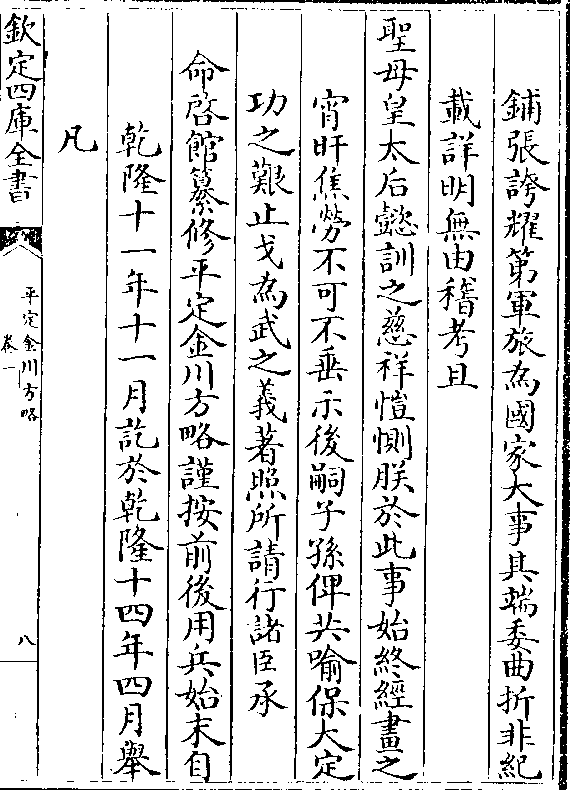 鋪張誇耀第軍旅為國家大事具端委曲折非紀
載詳明無由稽考且
聖母皇太后懿訓之慈祥愷惻朕於此事始終經畫之
宵旰焦勞不可不垂示後嗣子孫俾共喻保大定
功之艱止戈為武之義著照所請行諸臣承
命啓館纂修平定金川方略謹按前後用兵始末自
乾隆十一年十一月訖於乾隆十四年四月舉
凡
欽定四庫全書
平定金川方略
卷一
八